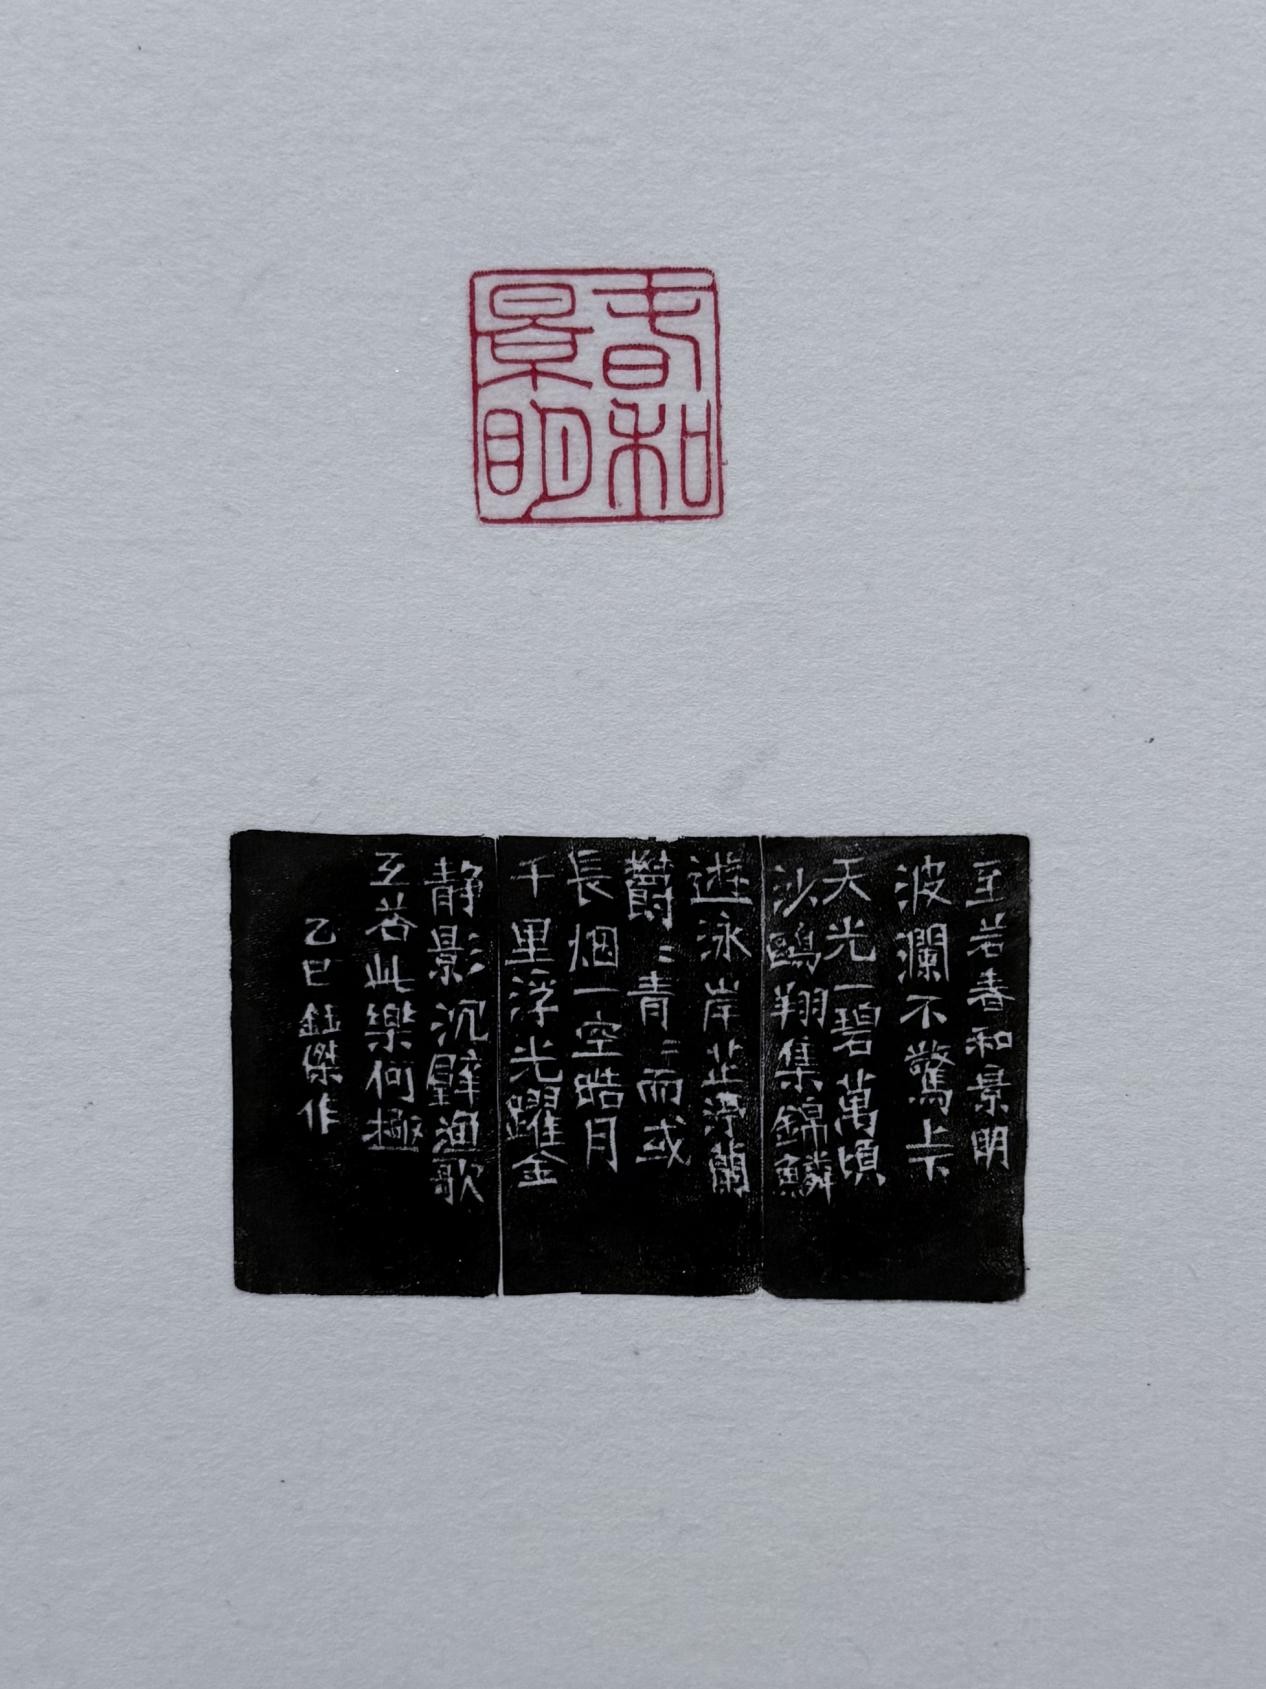 春和
景明
至若春和景明
波瀾不驚上下
天光一碧萬頃
沙鷗翔集錦鱗
遊泳岸芷汀蘭
鬱〻青〻而或
長烟一空皓月
千里浮光躍金
静影沉璧漁歌
互荅此樂何極
乙巳鈺傑作